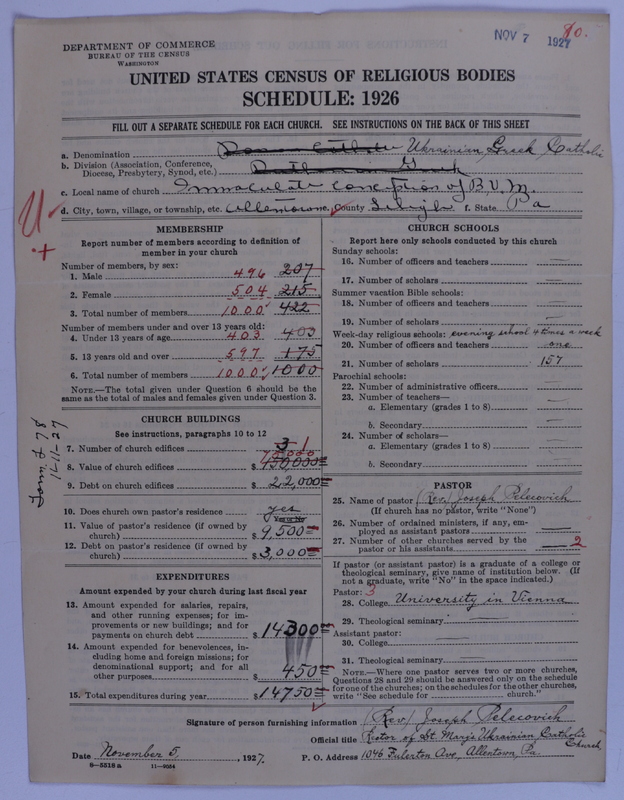 NOV 7 1927
80.
DEPARTMENT OF COMMERCE
BUREAU OF THE CENSUS
WASHINGTON
UNITED STATES CENSUS OF RELIGIOUS BODIES
SCHEDULE: 1926
FILL OUT A SEPARATE SCHEDULE FOR EACH CHURCH. SEE INSTRUCTIONS ON THE BACK OF THIS SHEET
a. Denomination Ukrainian Greek Catholic
b. Division (Association, Conference, Diocese, Presbytery, Synod, etc.)
c. Local name of church Immaculate Conception of B.V.M.
d. City, town, village, or township, etc. Allentown, County Lehigh f. State Pa
U-
+
MEMBERSHIP
Report number of members according to definition of member in your church
Number of members, by sex:
1. Male 496 207
2. Female 504 215
3. Total number of members 1000 422
Number of members under and over 13 years old:
4. Under 13 years of age 403 403
5. 13 years old and over 597 175
6. Total number of members 1000 1000
NOTE.—The total given under Question 6 should be the same as the total of males and females given under Question 3.
CHURCH BUILDINGS
See instructions, paragraphs 10 to 12
7. Number of church edifices 3 1
75,000
8. Value of church edifices $ 150,000
9. Debt on church edifices $ 22,000
10. Does church own pastor's residence yes
Yes or No
11. Value of pastor's residence (if owned by church) $ 9,500
12. Debt on pastor's residence (if owned by church) $ 3,000
Form of 878
11-11-27
EXPENDITURES
Amount expended by your church during last fiscal year
13. Amount expended for salaries, repairs, and other running expenses; for improvements or new buildings; and for payments on church debt $ 14300
14. Amount expended for benevolences, including home and foreign missions; for denominational support; and for all other purposes $ 450
15. Total expenditures during year $ 14750
CHURCH SCHOOLS
Report here only schools conducted by this church
Sunday schools:
16. Number of officers and teachers
17. Number of scholars
Summer vacation Bible schools:
18. Number of officers and teachers
19. Number of scholars
Week-day religious schools: evening school 4 times a week
20. Number of officers and teachers one
21. Number of scholars 157
Parochial schools:
22. Number of administrative officers
23. Number of teachers—
a. Elementary (grades 1 to 8)
b. Secondary
24. Number of scholars—
a. Elementary (grades 1 to 8)
b. Secondary
PASTOR
25. Name of pastor (Rev) Joseph Pelecovich
(If church has no pastor, write "None")
26. Number of ordained ministers, if any, employed as assistant pastors
27. Number of other churches served by the pastor or his assistants 2
If pastor (or assistant pastor) is a graduate of a college or theological seminary, give name of institution below. (If not a graduate, write "No" in the space indicated.)
Pastor: 3
28. College University in Vienna
29. Theological seminary
Assistant pastor:
30. College
31. Theological seminary
NOTE.—Where one pastor serves two or more churches, Questions 28 and 29 should be answered only on the schedule for one of the churches; on the schedules for the other churches, write "See schedule for church."
Signature of person furnishing information (Rev) Joseph Pelecovich
Official title Rector of St. Mary's Ukrainian Catholic Church
Date November 5, 1927. P. O. Address 1046 Fulerton Ave, Allentown, Pa.
8—5518 a 11—9034